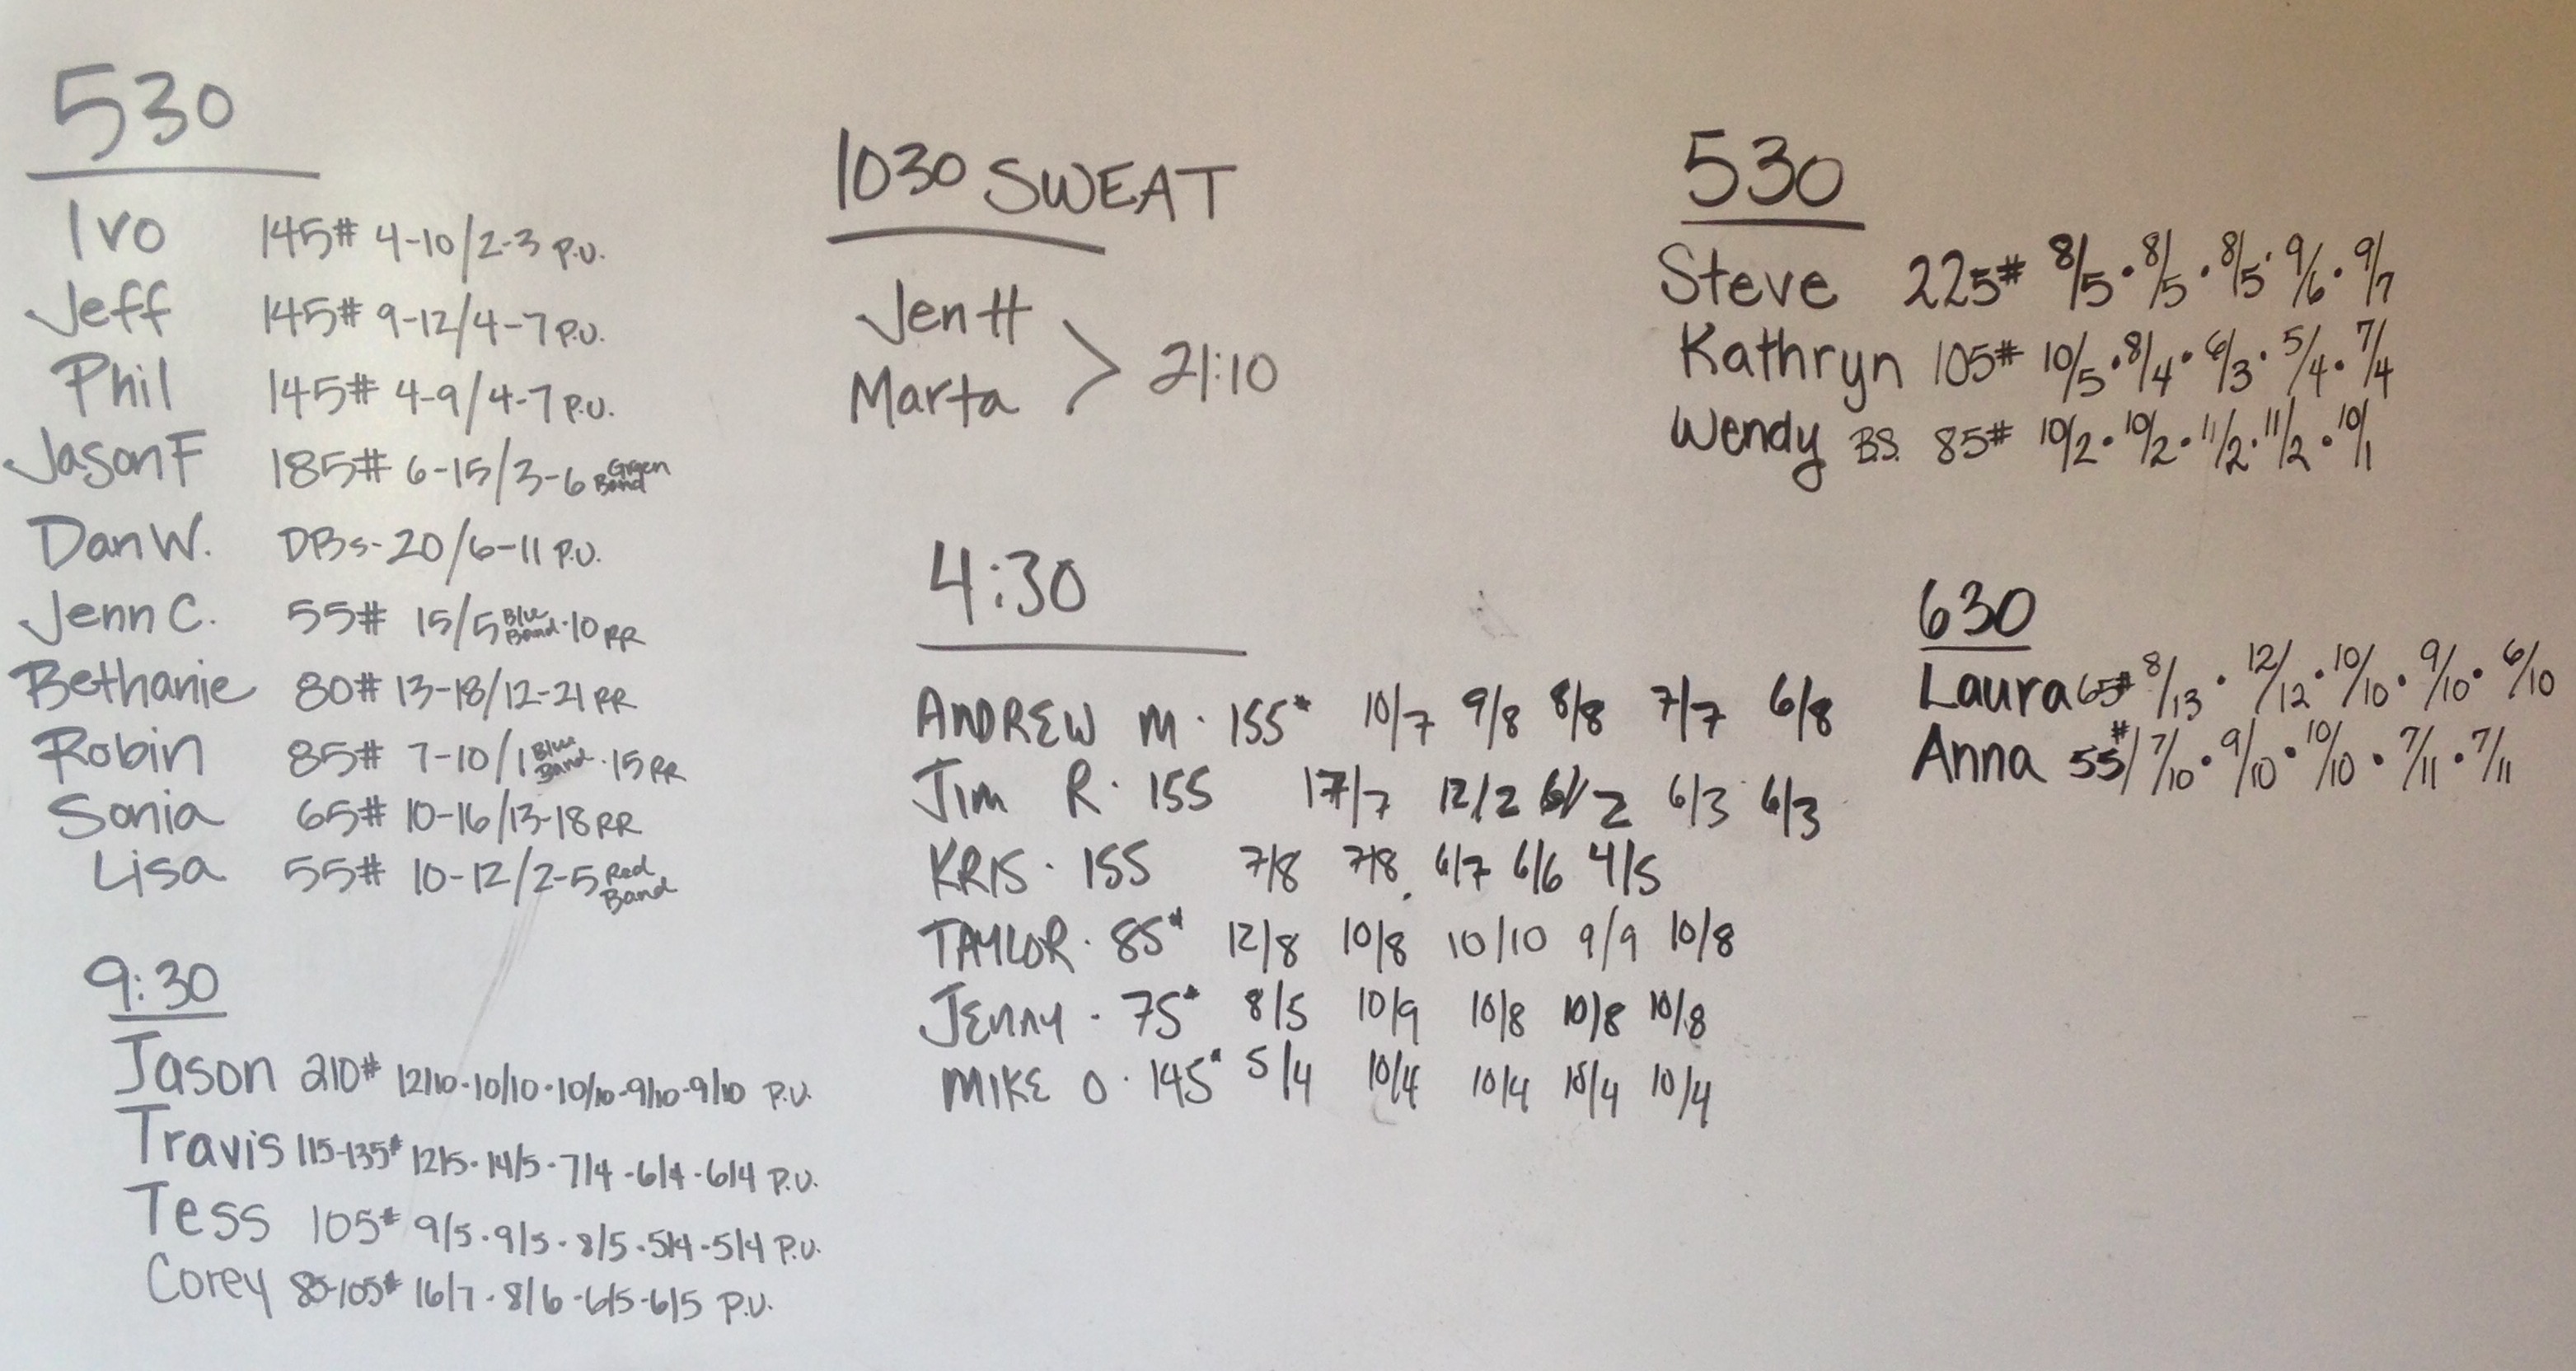 530
Ivo 145# 4-10/2-3 P.U.
Jeff 145# 9-12/4-7 P.U.
Phil 145# 4-9/4-7 P.U.
Jason F 185# 6-15/3-6 Green Band
Dan W. DBs-20/6-11 P.U.
Jenn C. 55# 15/5 Blue Band·10 RR
Bethanie 80# 13-18/12-21 RR
Robin 85# 7-10/1 Blue Band·15 RR
Sonia 65# 10-16/13-18 RR
Lisa 55# 10-12/2-5 Red Band
9:30
Jason 210# 12/10-10/10-10/10-9/10-9/10 P.U.
Travis 115-135# 12/5-14/5-7/4-6/4-6/4 P.U.
Tess 105# 9/5·9/5·8/5·5/4·5/4 P.U.
Corey 85-105# 16/7·8/6-6/5-6/5 P.U.
1030 SWEAT
Jen H
Marta > 21:10
4:30
ANDREW M · 155# 10/7 9/8 8/8 7/7 6/8
Jim R · 155 17/7 12/2 6/2 6/3 6/3
KRIS · 155 7/8 7/8 6/7 6/6 4/5
TAYLOR · 85# 12/8 10/8 10/10 9/9 10/8
JENNY - 75# 8/5 10/9 10/8 10/8 10/8
MIKE O · 145# 5/4 10/4 10/4 10/4 10/4
530
Steve 225# 8/5·8/5·8/5·9/6·9/7
Kathryn 105# 10/5·8/4·6/3·5/4·7/4
Wendy B.S. 85# 10/2·10/2·11/2·11/2·10/1
630
Laura 65# 8/13·12/12·10/10·9/10·6/10
Anna 55#/7/10·9/10·10/10·7/11·7/11